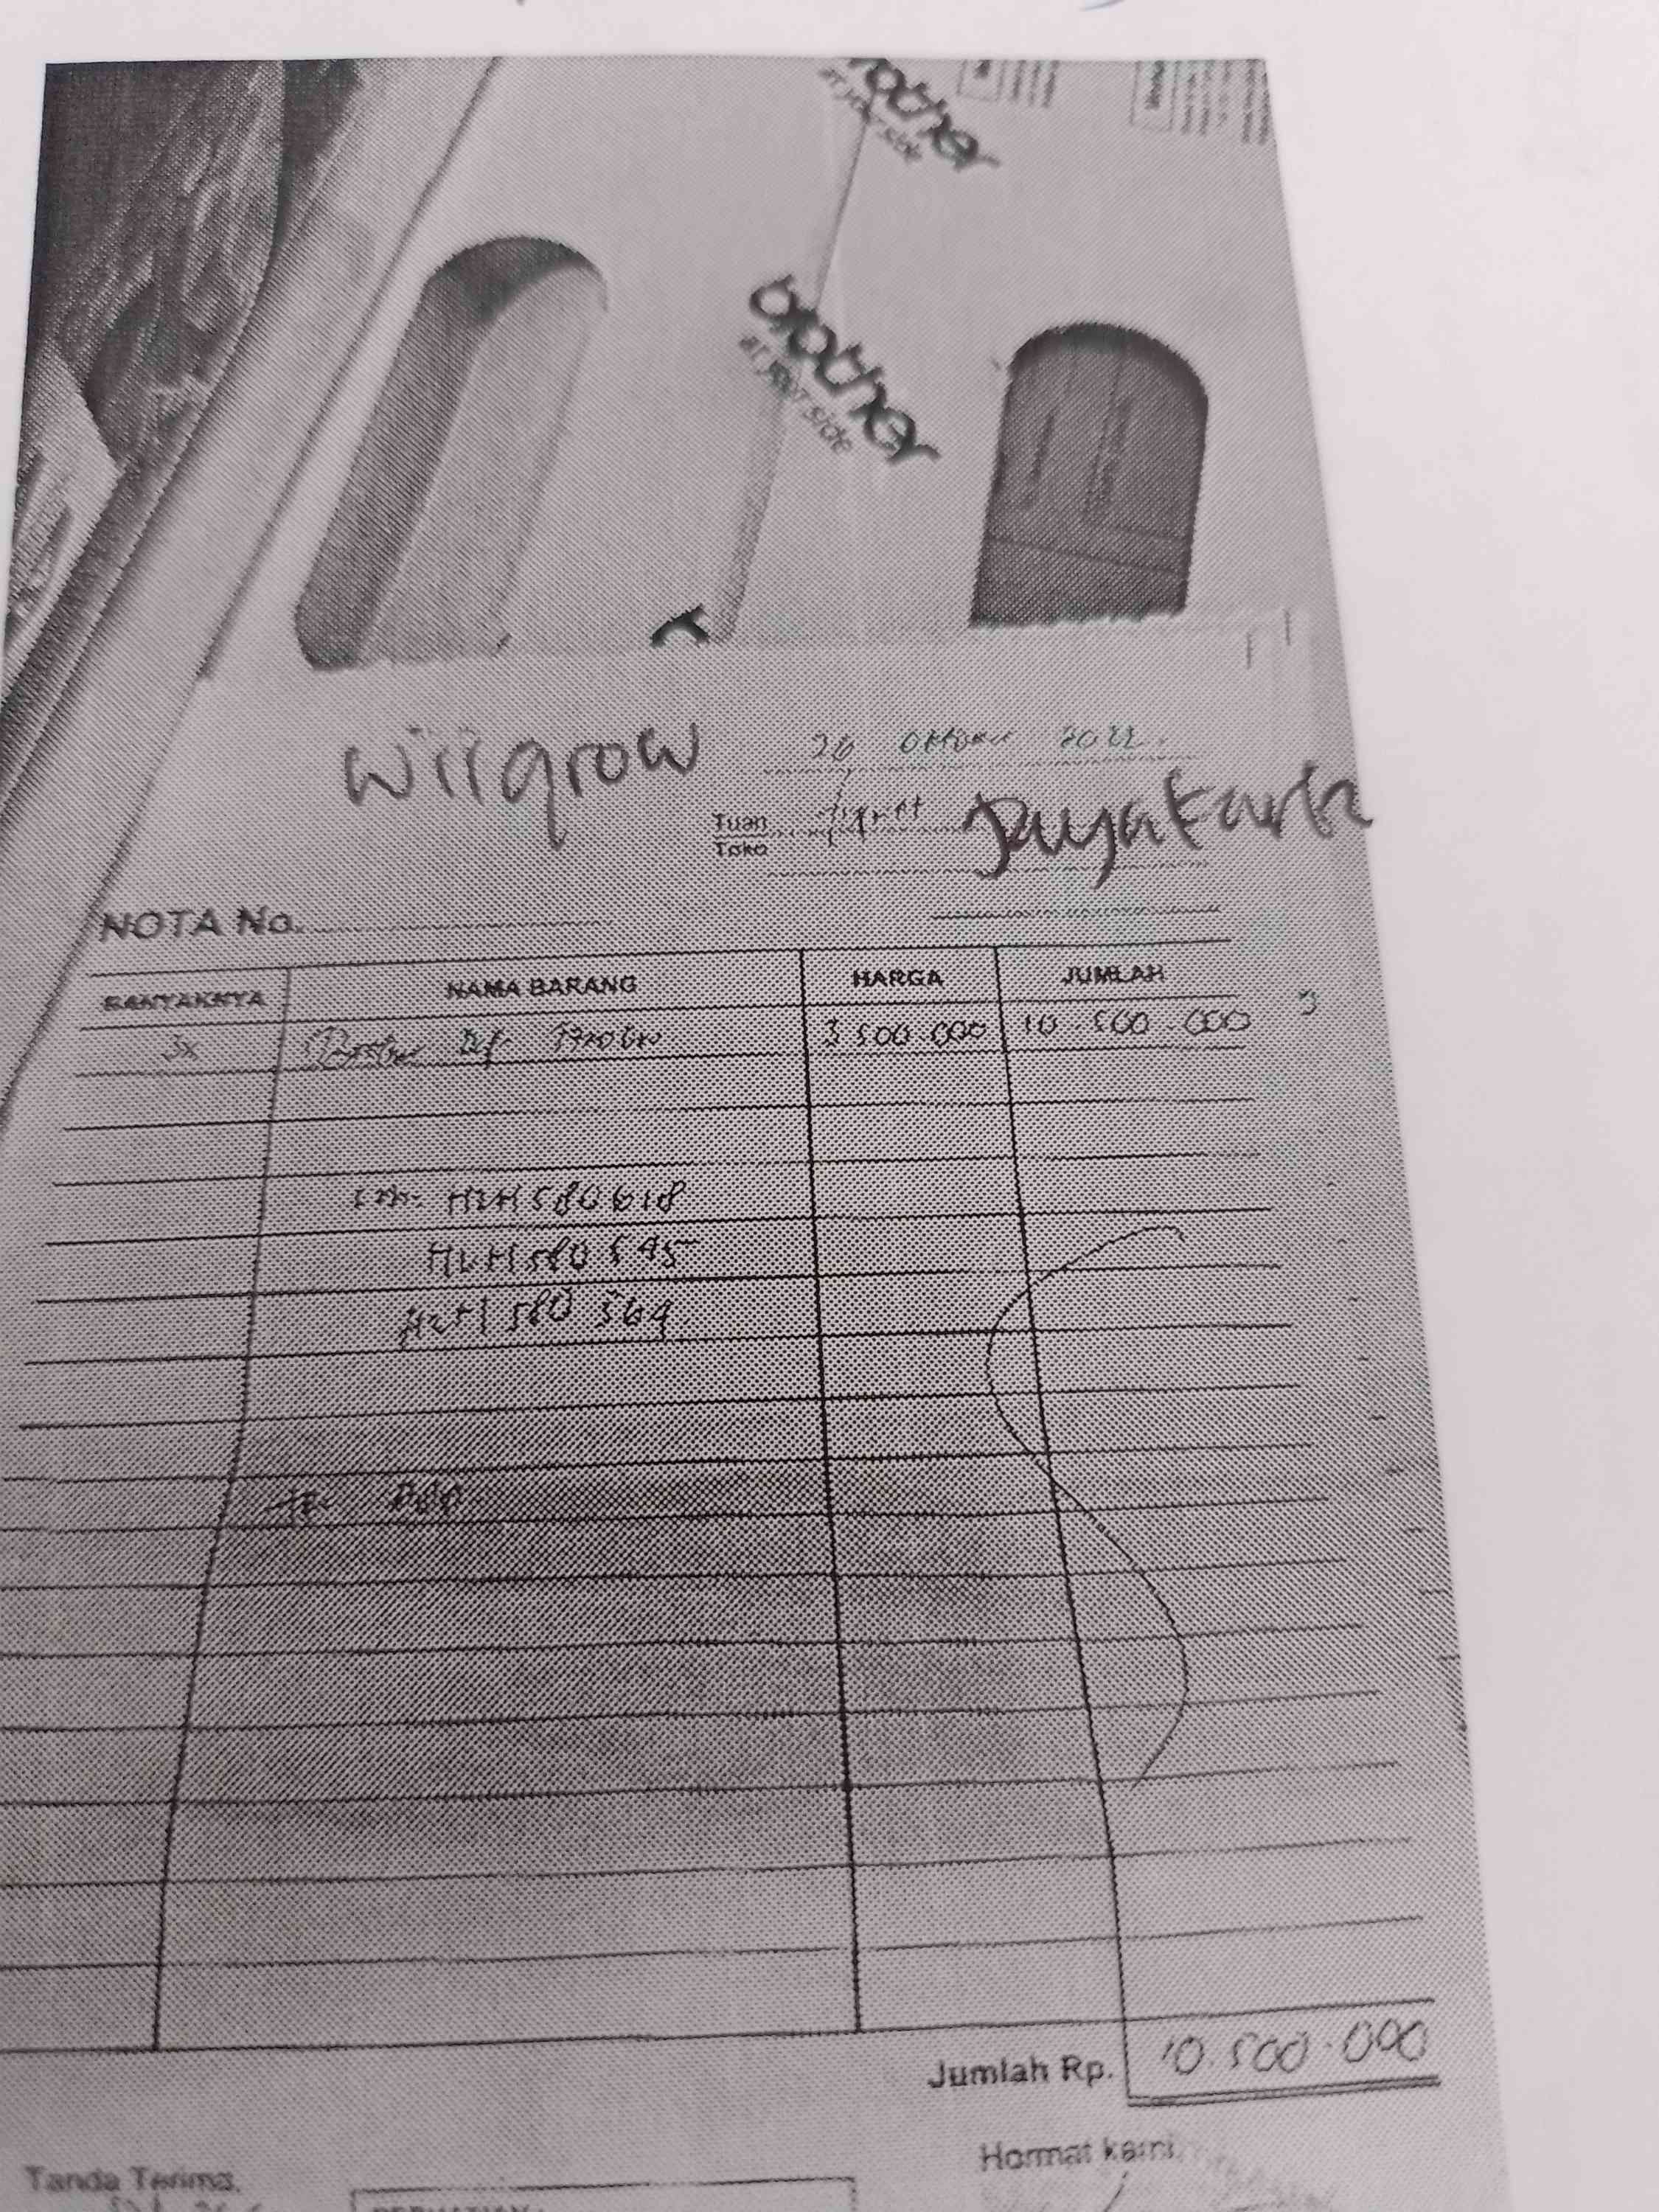 brother
at your side
brother
at your side
Wiiqrow
20 Oktober 2022.
Tuan
Toko
Jayakarta
NOTA No.
BANYAKNYA NAMA BARANG HARGA JUMLAH
3x Brother 3.500.000 10.500.000
HLH580618
HLH580595
HLH580564
Jumlah Rp. 10.500.000
Tanda Terima, Hormat kami,
PERHATIAN: